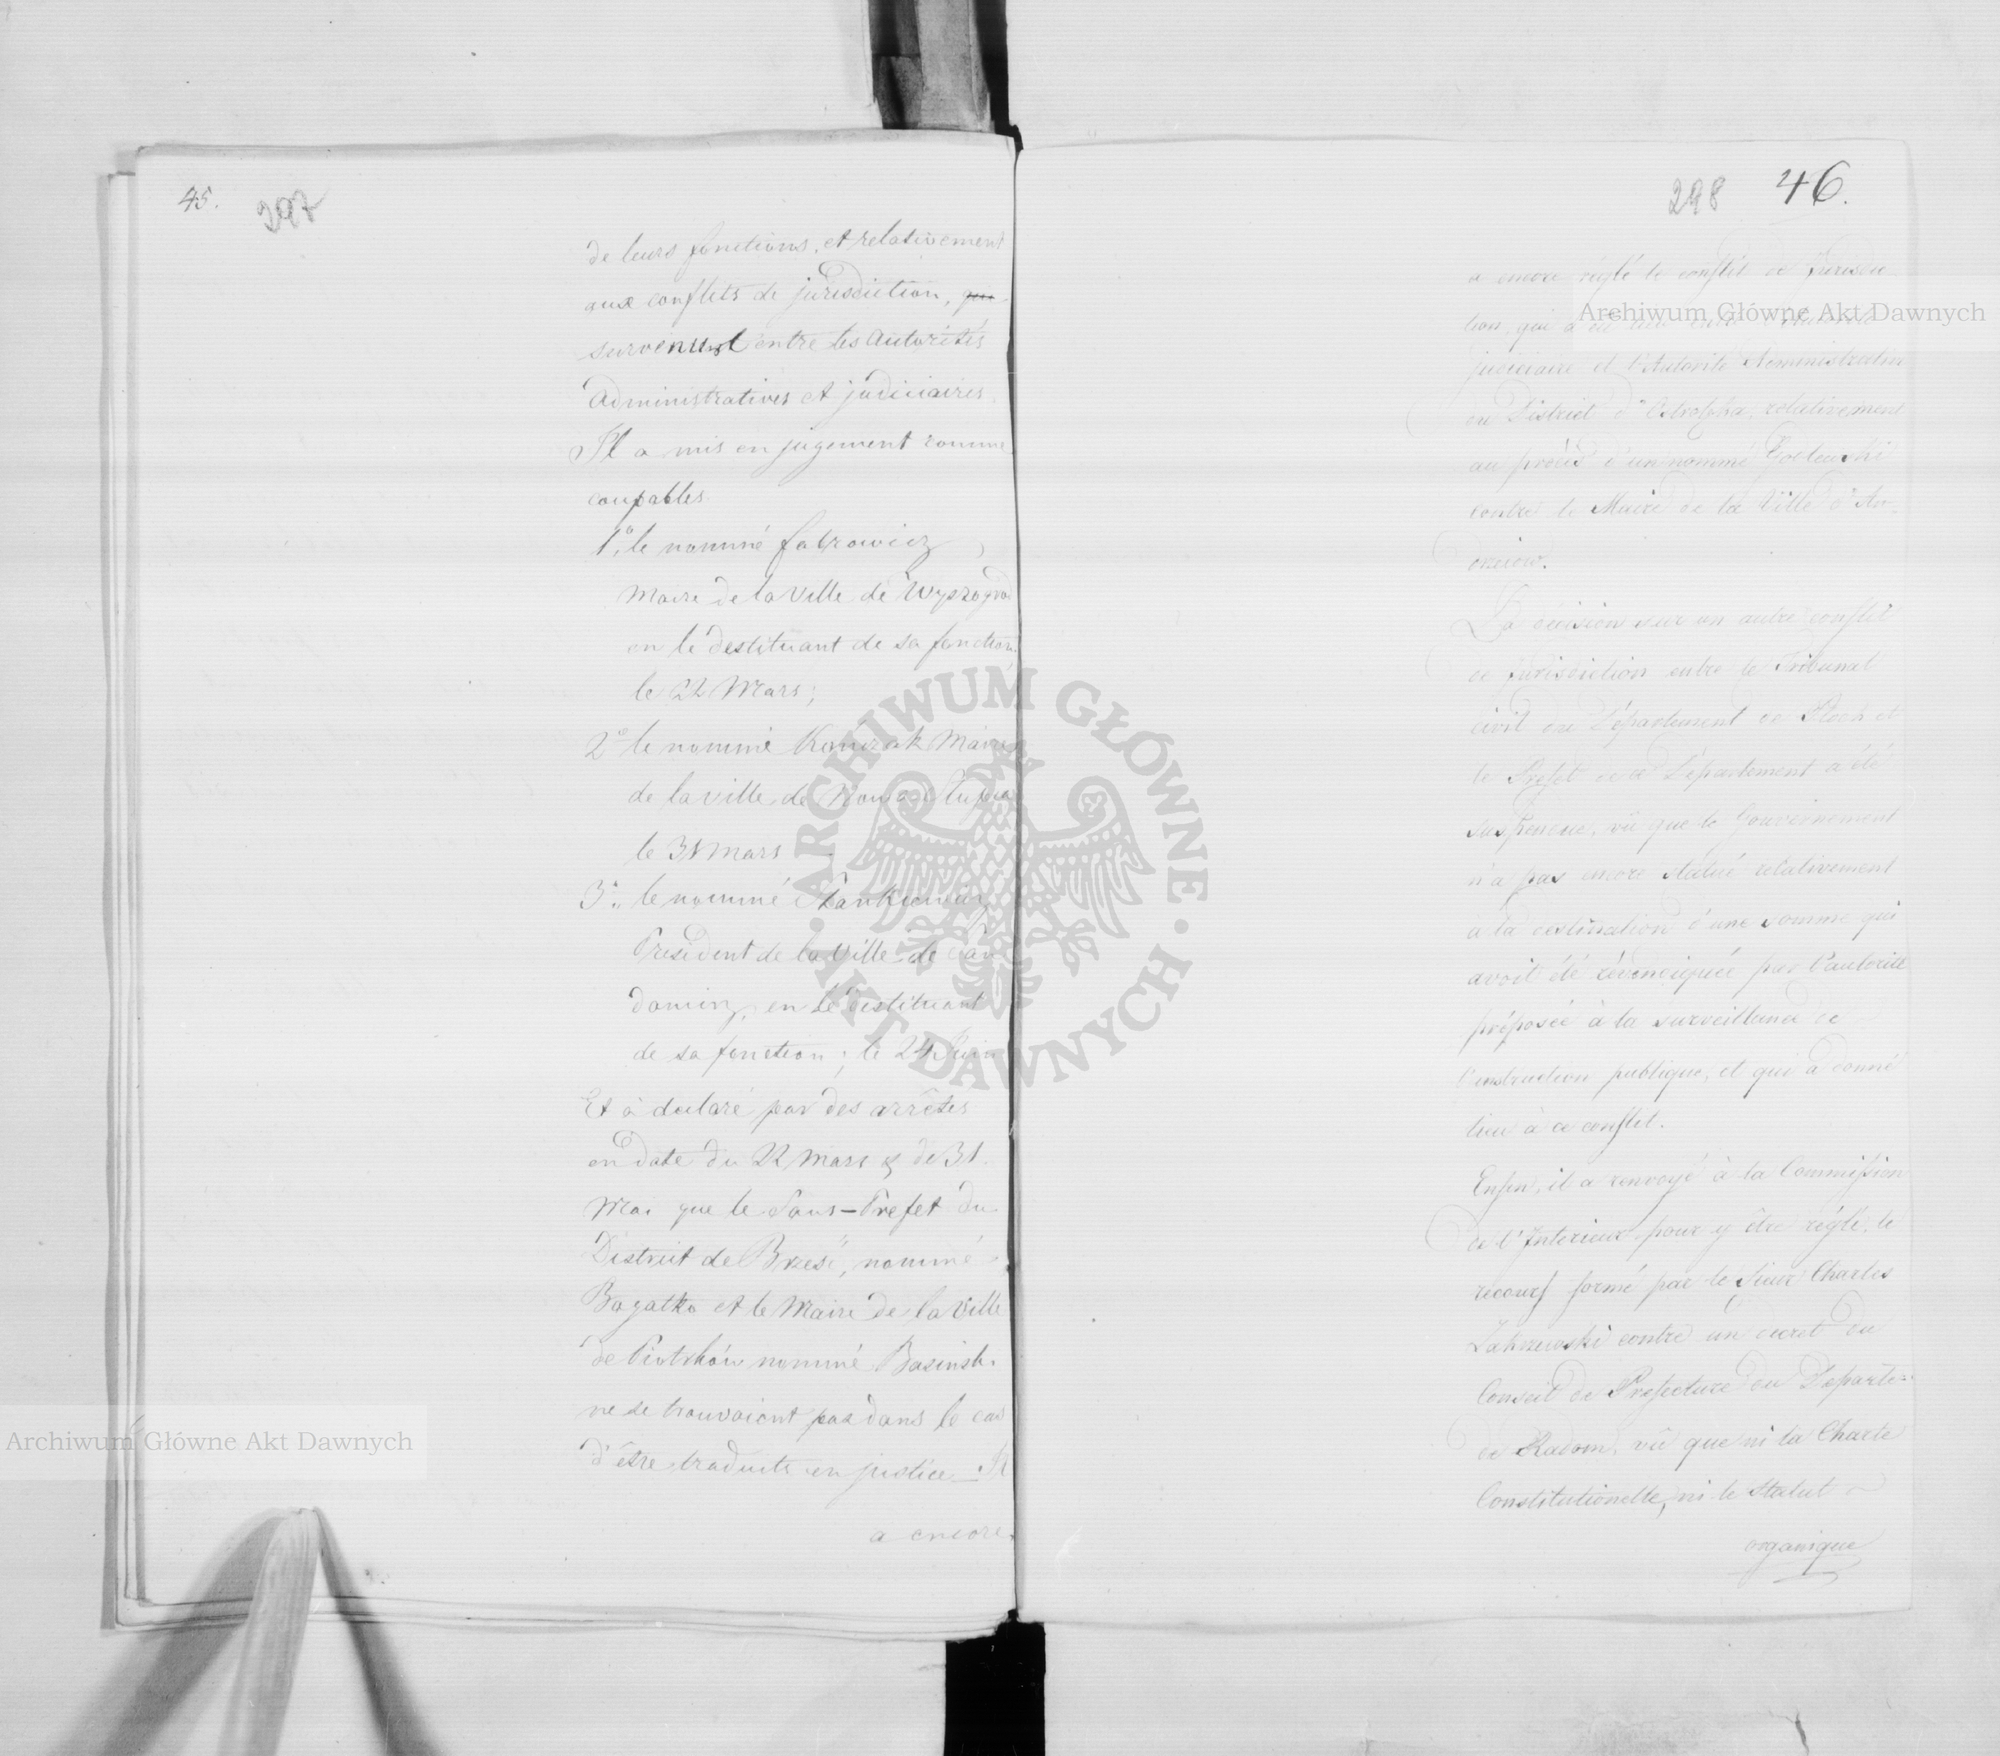 45. 297
de leurs fonctions, et relativement
aux conflits de jurisdiction,
survenus entre les Autorités
Administratives et judiciaires.
Il a mis en jugement comme
coupables
1º, le nommé Fabrowicz
Maire de la ville de Wyszogrod
en le destituant de sa fonction
le 22 Mars;
2º le nommé Konczak Maire
de la ville de Nowa Słupia
le 31 Mars
3º, le nommé Stankiewicz
President de la ville de San
domirz, en le destituant
de sa fonction; le 24 Juin
Et à declaré par des arrêtés
en date du 22 Mars & de 31
Mai que le Sous-Prefet du
District de Brzesć, nommé
Bogatko et le Maire de la ville
de Piotrków nommé Basinski
ne se trouvaient pas dans le cas
d'être traduits en justice. Il
a encore
298 46.
a encore réglé le conflit de Jurisdic
tion, qui a eû lieu entre l'Autorité
judiciaire et l'Autorité Administrative
du District d'Ostrołęka, relativement
au procès d'un nommé
contre le Maire de la Ville d'An
drzeiow.
La décision sur un autre conflit
de Jurisdiction entre le Tribunal
civil du Département de Plock et
le Prefet de ce Département a été
suspendue, vû que le Gouvernement
n'a pas encore statué relativement
à la destination d'une somme qui
avoit été révendiquée par l'autorité
préposée à la surveillance de
l'instruction publique, et qui a donné
lieu à ce conflit.
Enfin, il a renvoyé à la Commission
de l'Interieur, pour y être réglé, le
recours formé par le Sieur Charles
Zakrzewski contre un decret du
Conseil de Prefecture du Departe=
de Radom, vû que ni la Charte
Constitutionelle, ni le Statut
organique
Archiwum Główne Akt Dawnych
Archiwum Główne Akt Dawnych
ARCHIWUM GŁÓWNE · AKT DAWNYCH ·